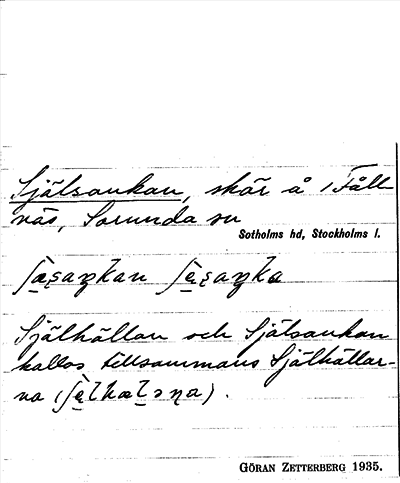 Själsankan, skär å Fåll-
näs, Sorunda sn
Sotholms hd, Stockholms l.
Själhällan och Själsankan
kallas tillsammans Själhällar-
na
GÖRAN ZETTERBERG 1935.